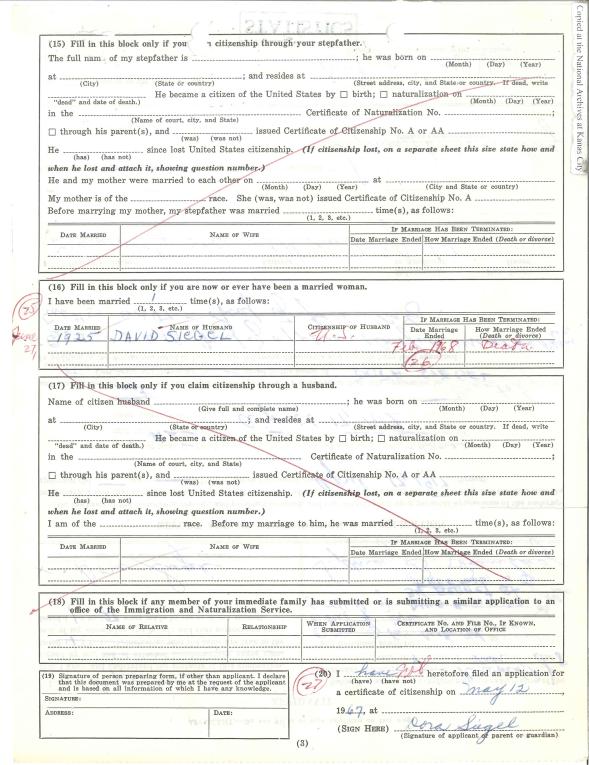 Copied at the National Archives at Kanas City
(15) Fill in this block only if you citizenship through your stepfather.
The full name of my stepfather is ; he was born on
(Month) (Day) (Year)
at ; and resides at
(City) (State or country) (Street address, city, and State or country. If dead, write
He became a citizen of the United States by ☐ birth; ☐ naturalization on
"dead" and date of death.) (Month) (Day) (Year)
in the Certificate of Naturalization No. ;
(Name of court, city, and State)
☐ through his parent(s), and issued Certificate of Citizenship No. A or AA
(was) (was not)
He since lost United States citizenship. (If citizenship lost, on a separate sheet this size state how and
(has) (has not)
when he lost and attach it, showing question number.)
He and my mother were married to each other on at
(Month) (Day) (Year) (City and State or country)
My mother is of the race. She (was, was not) issued Certificate of Citizenship No. A
Before marrying my mother, my stepfather was married time(s), as follows:
(1, 2, 3, etc.)
DATE MARRIED NAME OF WIFE IF MARRIAGE HAS BEEN TERMINATED:
Date Marriage Ended How Marriage Ended (Death or divorce)
(16) Fill in this block only if you are now or ever have been a married woman.
I have been married 1 time(s), as follows:
(1, 2, 3, etc.)
(25)
DATE MARRIED NAME OF HUSBAND CITIZENSHIP OF HUSBAND IF MARRIAGE HAS BEEN TERMINATED:
Date Marriage Ended How Marriage Ended (Death or divorce)
June 27, 1925 DAVID SIEGEL U.S. Feb. 1968 Death
(26)
(17) Fill in this block only if you claim citizenship through a husband.
Name of citizen husband ; he was born on
(Give full and complete name) (Month) (Day) (Year)
at ; and resides at
(City) (State or country) (Street address, city, and State or country. If dead, write
He became a citizen of the United States by ☐ birth; ☐ naturalization on
"dead" and date of death.) (Month) (Day) (Year)
in the Certificate of Naturalization No. ;
(Name of court, city, and State)
☐ through his parent(s), and issued Certificate of Citizenship No. A or AA
(was) (was not)
He since lost United States citizenship. (If citizenship lost, on a separate sheet this size state how and
(has) (has not)
when he lost and attach it, showing question number.)
I am of the race. Before my marriage to him, he was married time(s), as follows:
(1, 2, 3, etc.)
DATE MARRIED NAME OF WIFE IF MARRIAGE HAS BEEN TERMINATED:
Date Marriage Ended How Marriage Ended (Death or divorce)
(18) Fill in this block if any member of your immediate family has submitted or is submitting a similar application to an
office of the Immigration and Naturalization Service.
NAME OF RELATIVE RELATIONSHIP WHEN APPLICATION SUBMITTED CERTIFICATE NO. AND FILE NO., IF KNOWN, AND LOCATION OF OFFICE
(19) Signature of person preparing form, if other than applicant. I declare
that this document was prepared by me at the request of the applicant
and is based on all information of which I have any knowledge.
SIGNATURE:
ADDRESS: DATE:
(20) I have not heretofore filed an application for
(27) (have) (have not)
a certificate of citizenship on May 12,
1967, at
(SIGN HERE) Dora Siegel
(Signature of applicant or parent or guardian)
(3)